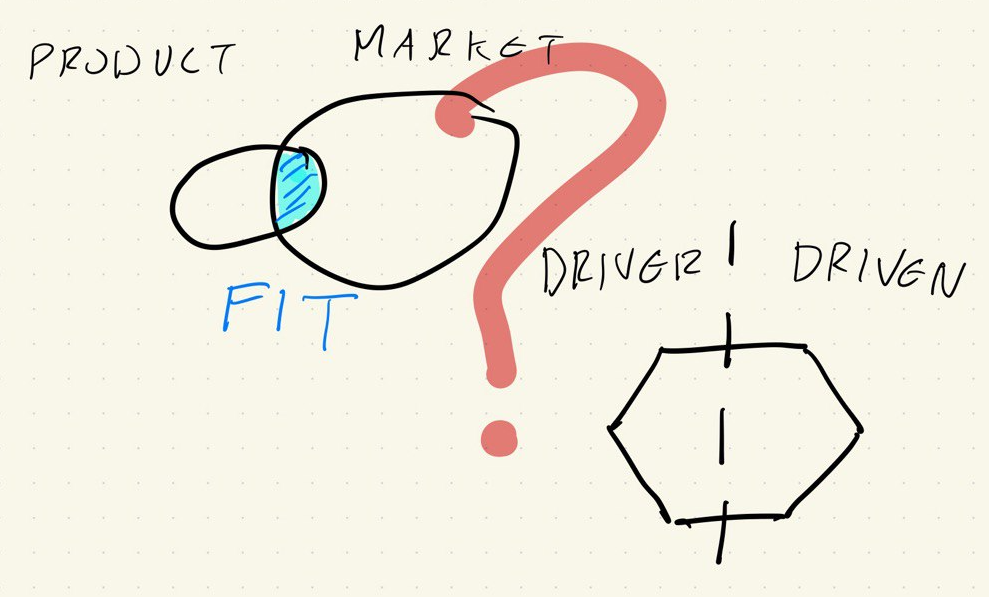 PRODUCT MARKET
FIT
DRIVER DRIVEN
?